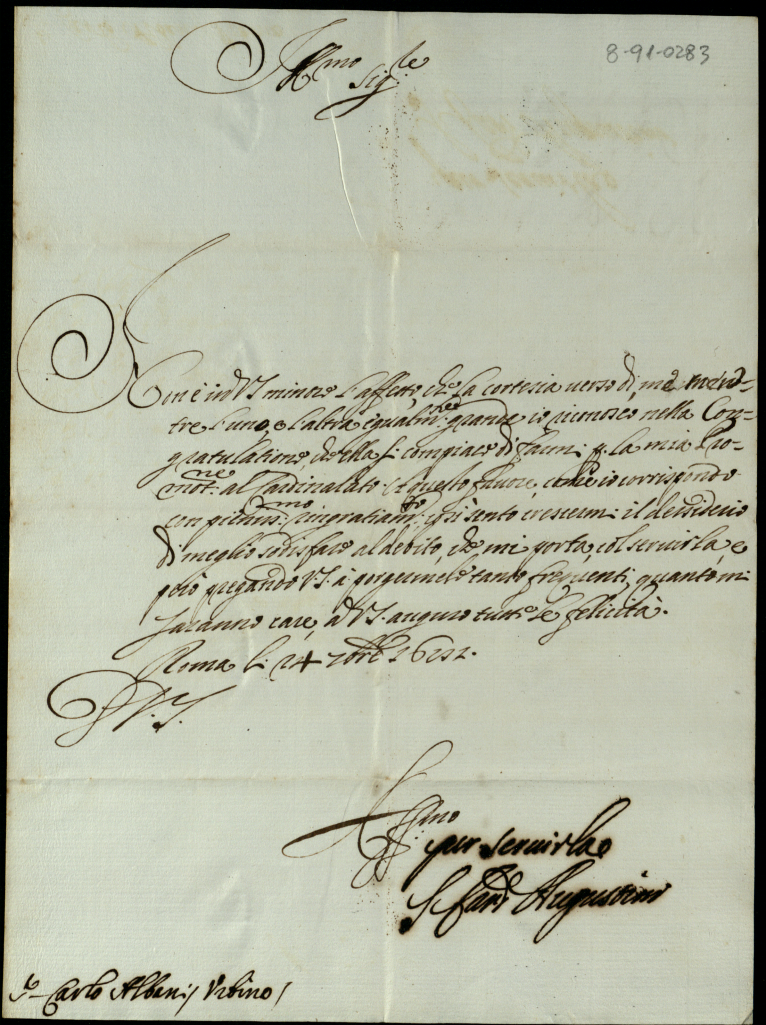 8-91-0283
Ill.mo Sig.re
Non è in V.S. minore l'affetto, che la cortesia verso di me, men-
tre l'uno, e l'altra egualm.te grande io riconosco nella Con-
gratulatione, che ella si compiace di farmi p. la mia Pro-
mot.ne al Cardinalato. Et à questo favore, come io corrispondo
con pieniss.mo ringratiam.to, così sento crescermi il desiderio
di meglio sodisfare al debito, che mi porta, col servirla, e
però pregando V.S. à porgermele tanto frequenti, quanto mi
saranno care, à V.S. auguro tutte le felicità.
Roma li 24 7bre
D V.S.
Aff.mo
per servirla
S Card. Augustini
S.r Carlo Albani / Urbino /